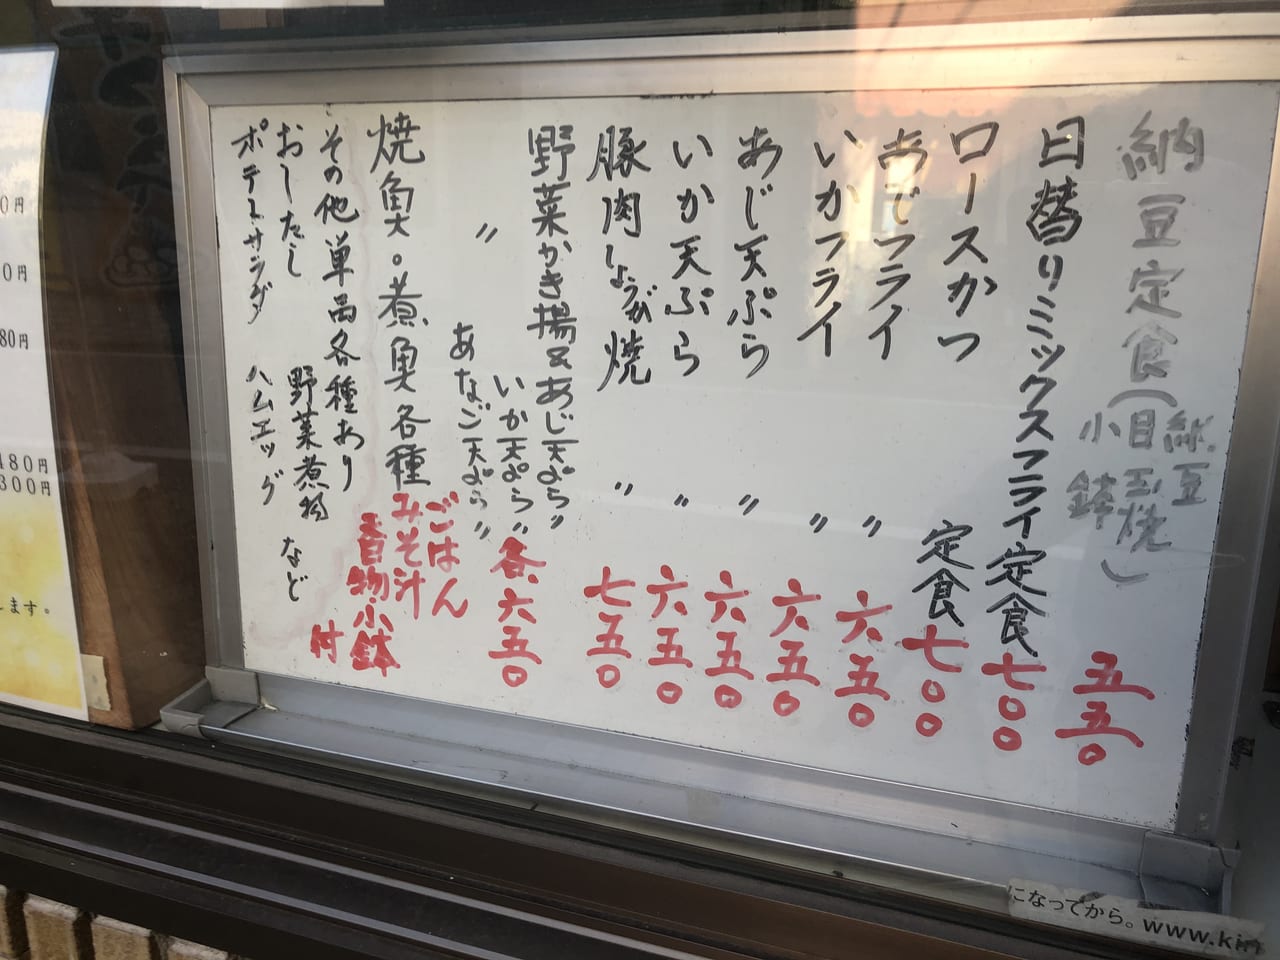 納豆定食(納豆
目玉焼
小鉢) 五五〇
日替りミックスフライ定食 七〇〇
ロースかつ 定食 七〇〇
あじフライ 〃 六五〇
いかフライ 〃 六五〇
あじ天ぷら 〃 六五〇
いか天ぷら 〃 六五〇
豚肉しょうが焼 〃 七五〇
野菜かき揚&あじ天ぷら〃
〃 いか天ぷら〃 各六五〇
あなご天ぷら〃
焼魚。煮魚各種
ごはん
みそ汁
香物・小鉢
付
その他単品各種あり
おしたし 野菜煮物 など
ポテトサラダ ハムエッグ
0円
0円
80円
480円
300円
ます。
になってから。www.kin